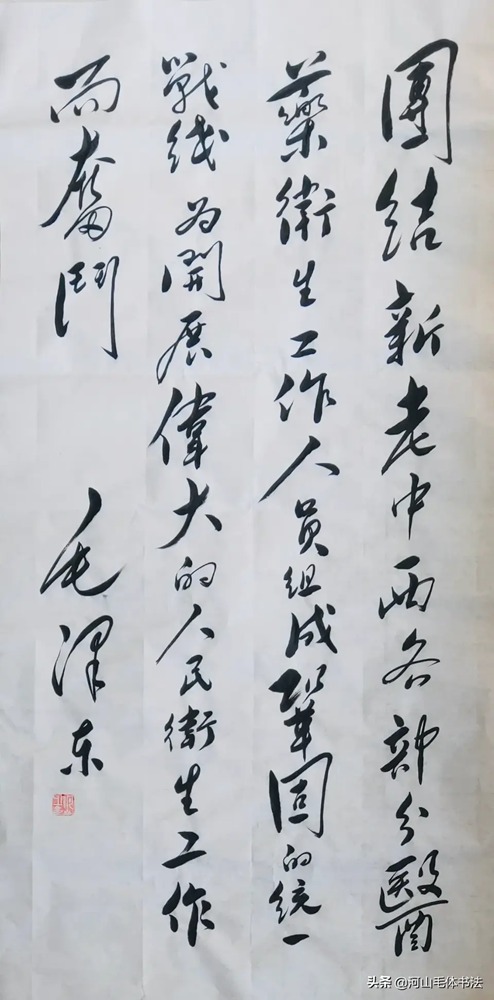 團结新老中西各部分醫
藥衛生工作人员组成鞏固的统一
戰线为開展偉大的人民衛生工作
而奮鬥
毛泽东
头条@河山毛体书法